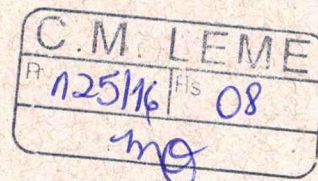 C.M. LEME
Pr 125/16 Fls 08